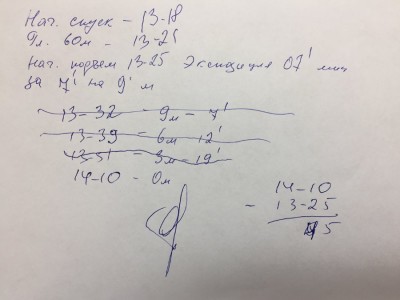 Нач. спуск – 13-18
Гл. 60м – 13-25
Нач. подъем 13-25 Экспозиция 07' мин
за 7' на 9' м
13-32 – 9м – 7'
13-39 – 6м 12'
13-51 – 3м – 19'
14-10 – 0м
14-10
– 13-25
45